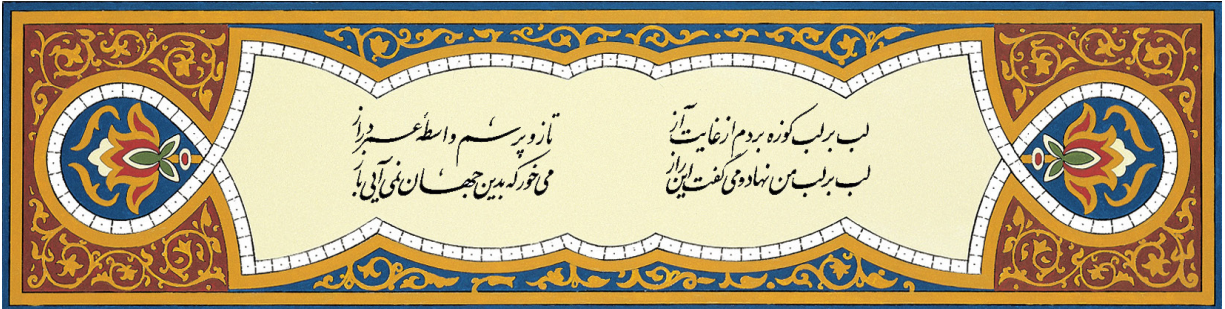 لب بر لب کوزه بردم از غایت آز تا زو پرسم واسطهٔ عمر دراز
لب بر لب من نهاد و می گفت این راز می خور که بدین جهان نمی آیی باز